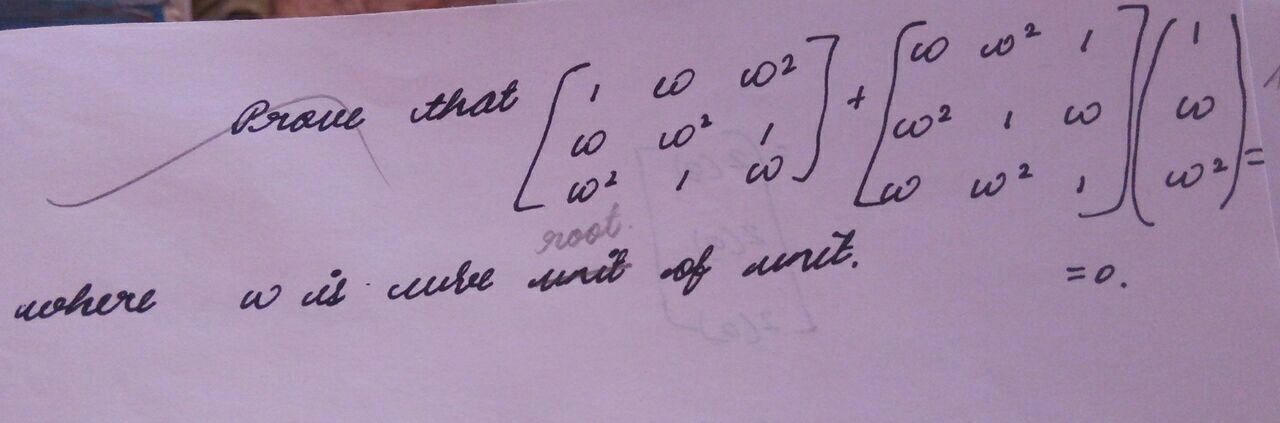 Prove that [1 ω ω² ; ω ω² 1 ; ω² 1 ω] + [ω ω² 1 ; ω² 1 ω ; ω ω² 1] (1 ; ω ; ω²) =
root.
where ω is cube unit of unit. = 0.